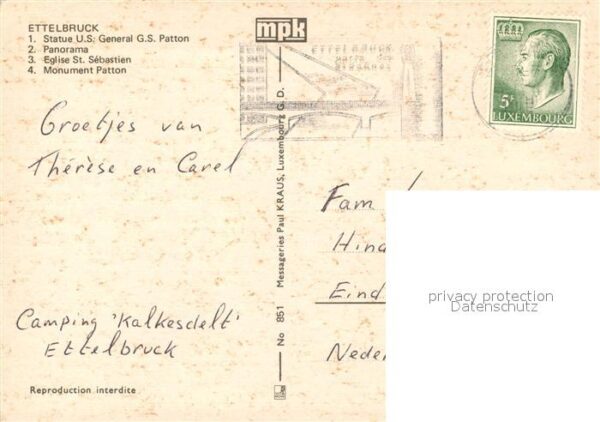 ETTELBRUCK
1. Statue U.S. General G.S. Patton
2. Panorama
3. Eglise St. Sébastien
4. Monument Patton
mpk
ETTELBRUCK
5F
LUXEMBOURG
Groetjes van
Thérèse en Carel
Camping 'Kalkesdelt'
Ettelbruck
Reproduction interdite
No 851 Messageries Paul KRAUS, Luxembourg G. D.
Fam
Hin
Eind
Neder
privacy protection
Datenschutz